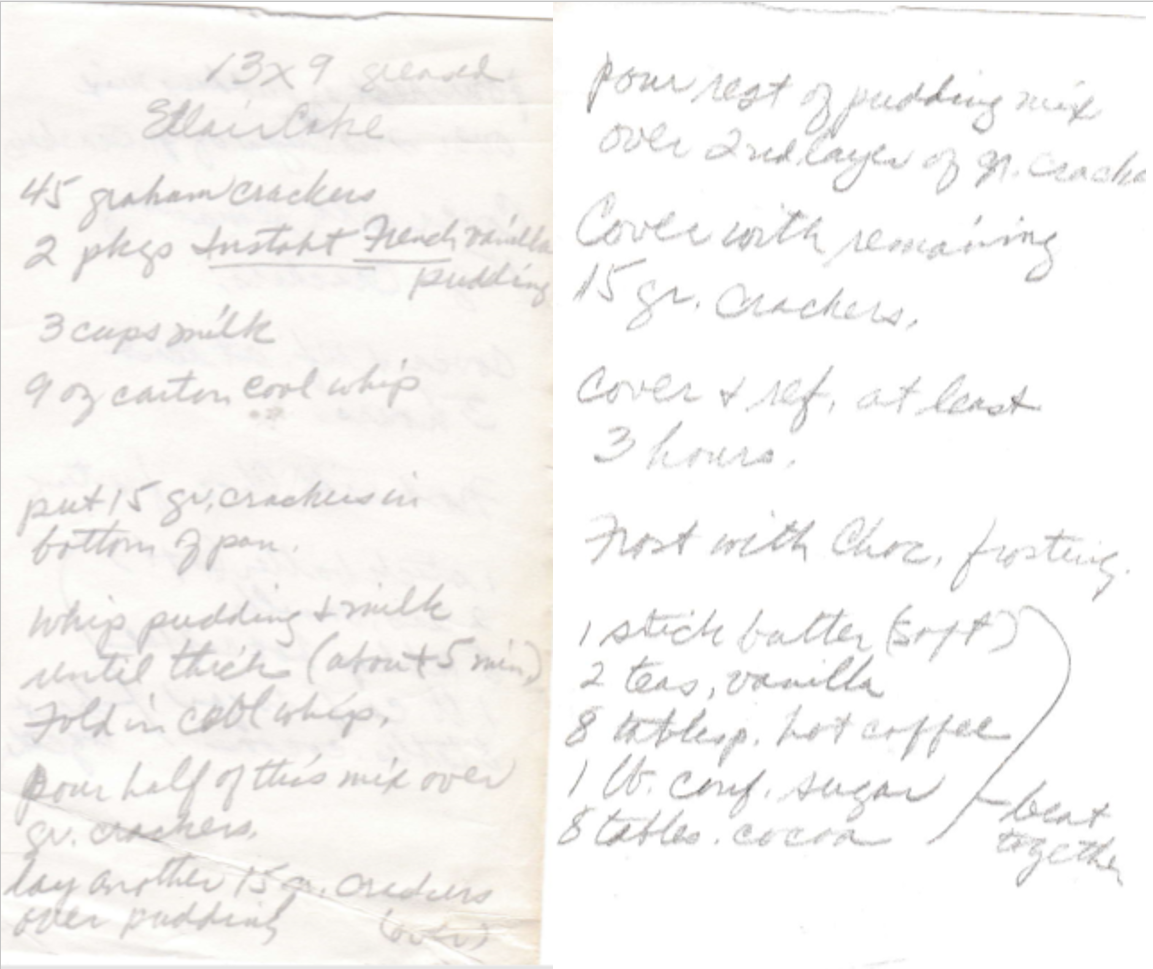 13x9 greased
Eclair Cake
45 graham crackers
2 pkgs Instant French vanilla
pudding
3 cups milk
9 oz carton cool whip
put 15 gr. crackers in
bottom of pan.
Whip pudding + milk
until thick (about 5 min)
Fold in cool whip.
pour half of this mix over
gr. crackers.
lay another 15 gr. crackers
over pudding (over)
pour rest of pudding mix
over 2nd layer of gr. cracke
Cover with remaining
15 gr. crackers.
Cover + ref. at least
3 hours.
Frost with Choc. frosting.
1 stick butter (soft)
2 teas. vanilla
8 tablesp. hot coffee
1 lb. conf. sugar
8 tables. cocoa
- beat
together